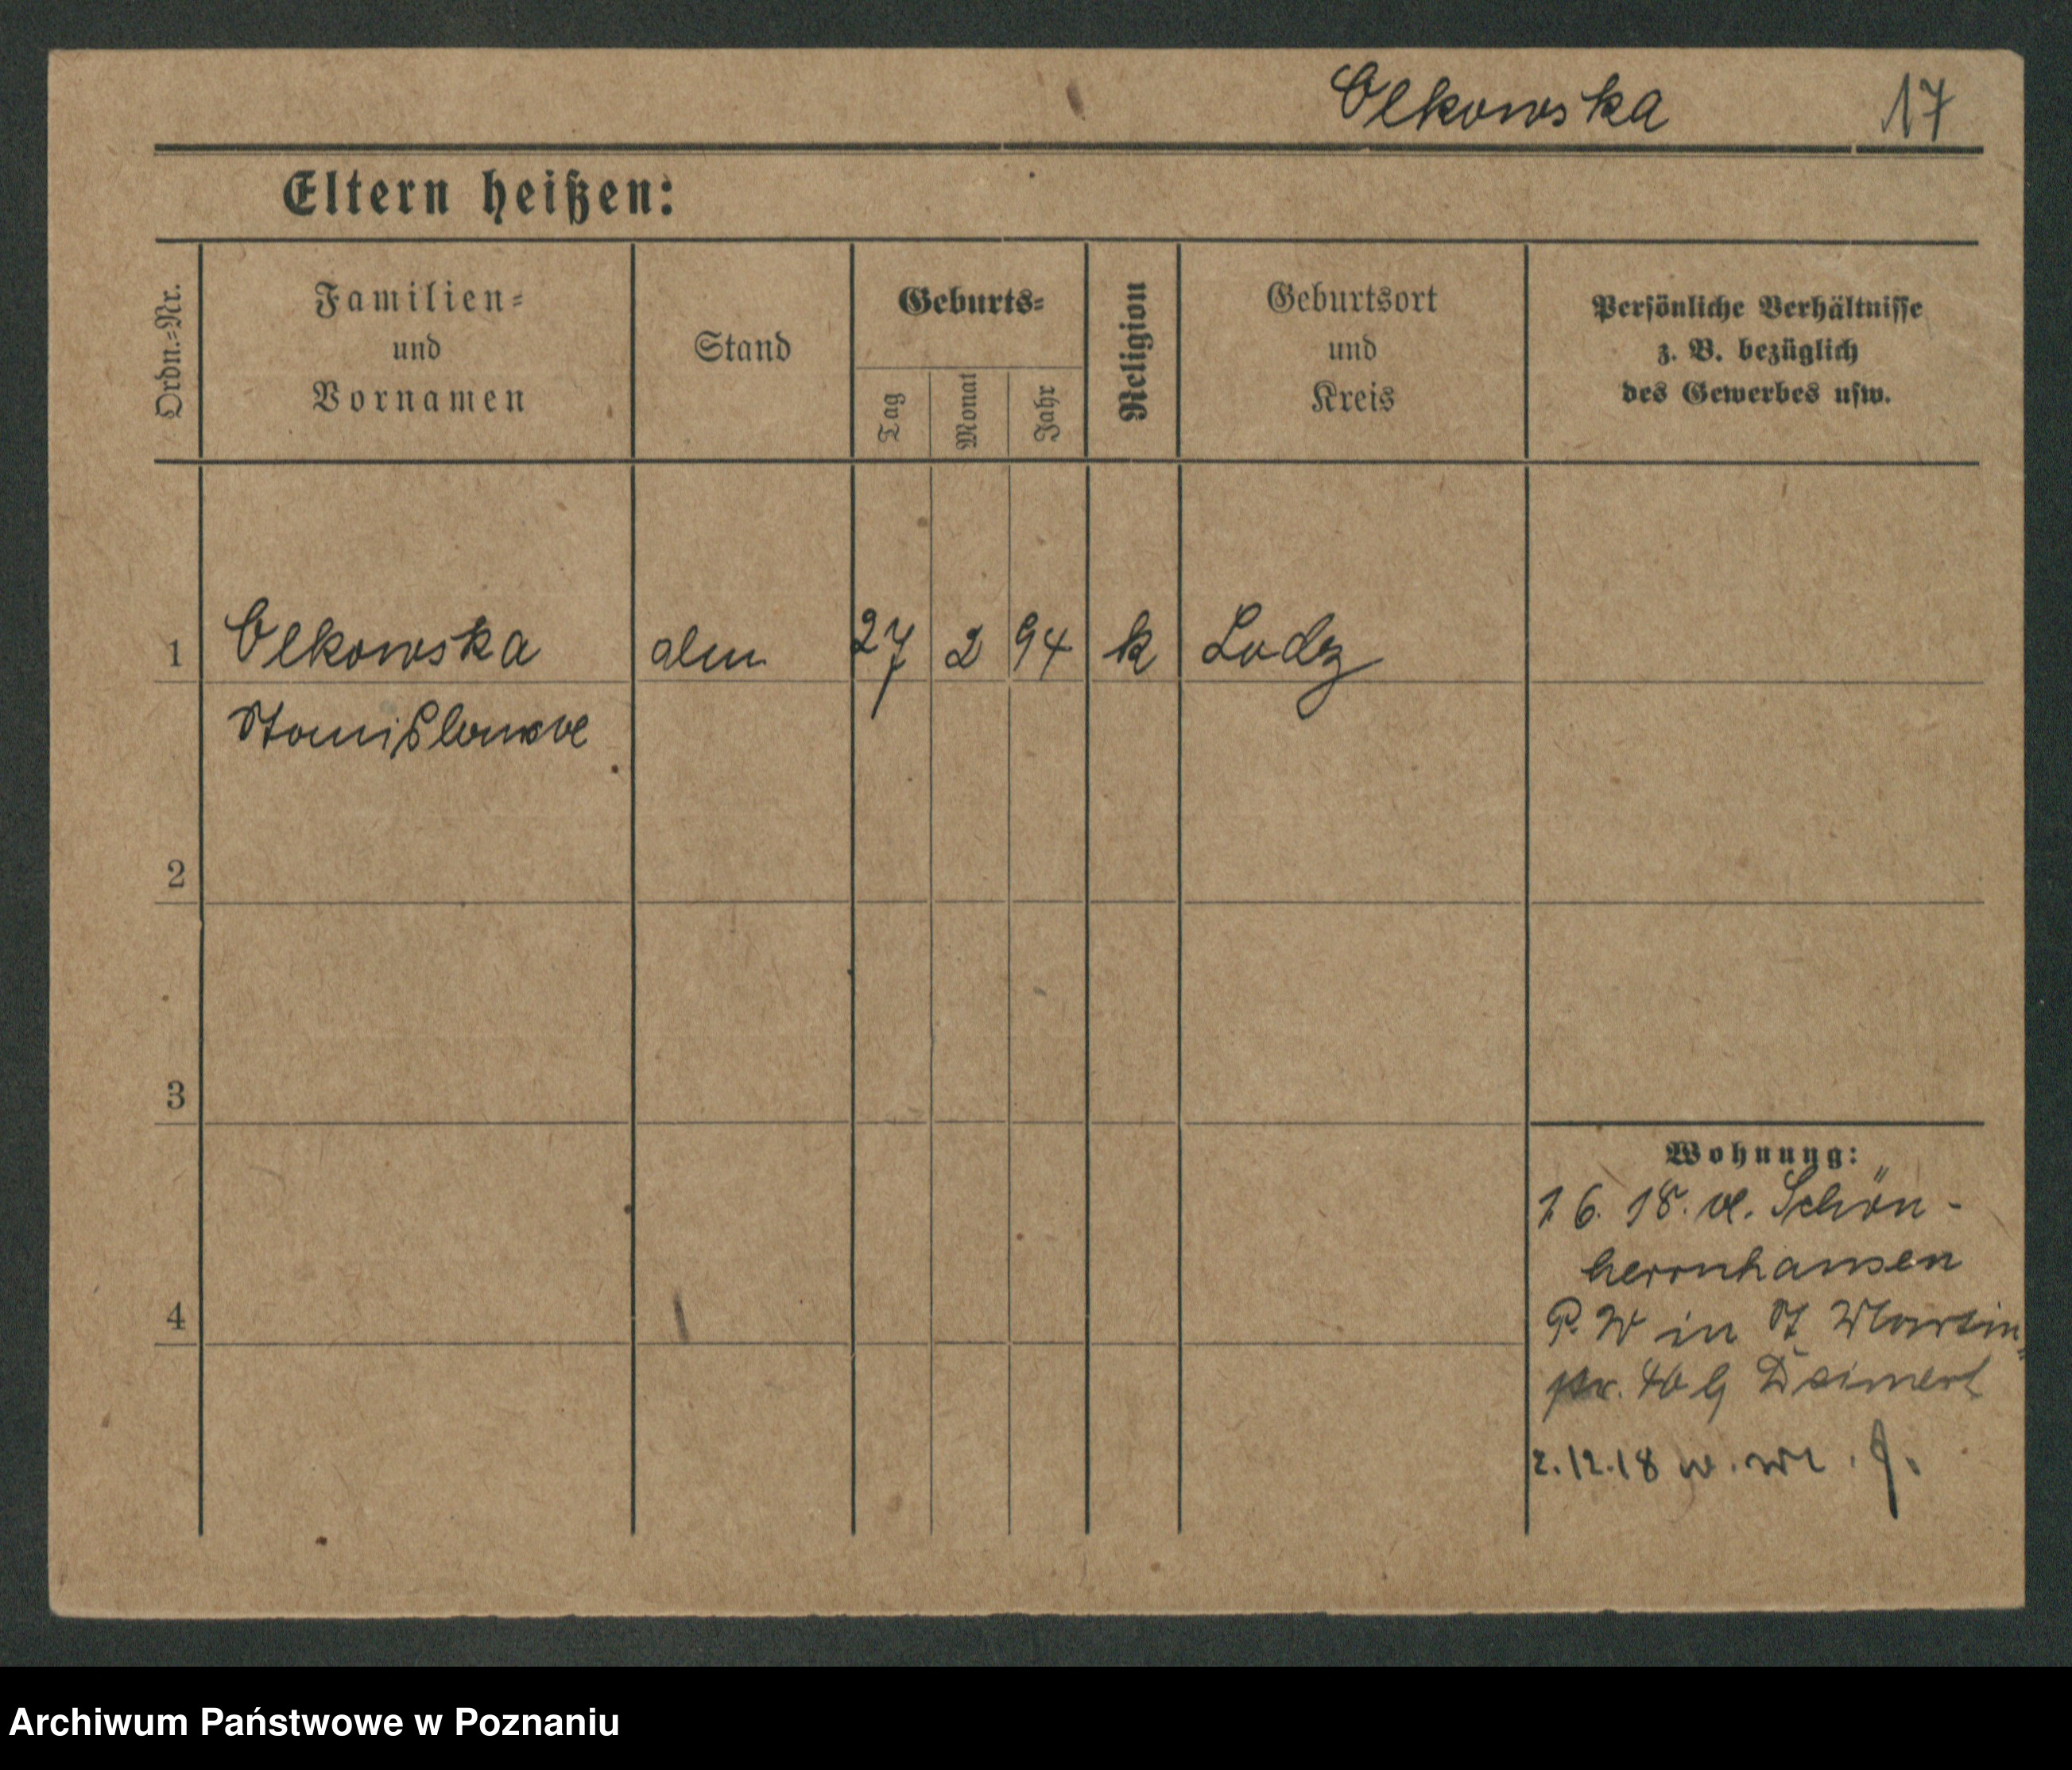 Olkowska 17
Eltern heißen:
Ordn.=Nr.
Familien=
und
Vornamen
Stand
Geburts=
Tag
Monat
Jahr
Religion
Geburtsort
und
Kreis
Persönliche Verhältnisse
z. B. bezüglich
des Gewerbes usw.
1 Olkowska 27 2 94 k Lodz
Stanislawa
2
3
4
Wohnung:
1. 6. 18. v. Schön-
herrnhausen
P. W in St Martin
str. 40 b
2.12.18
Archiwum Państwowe w Poznaniu